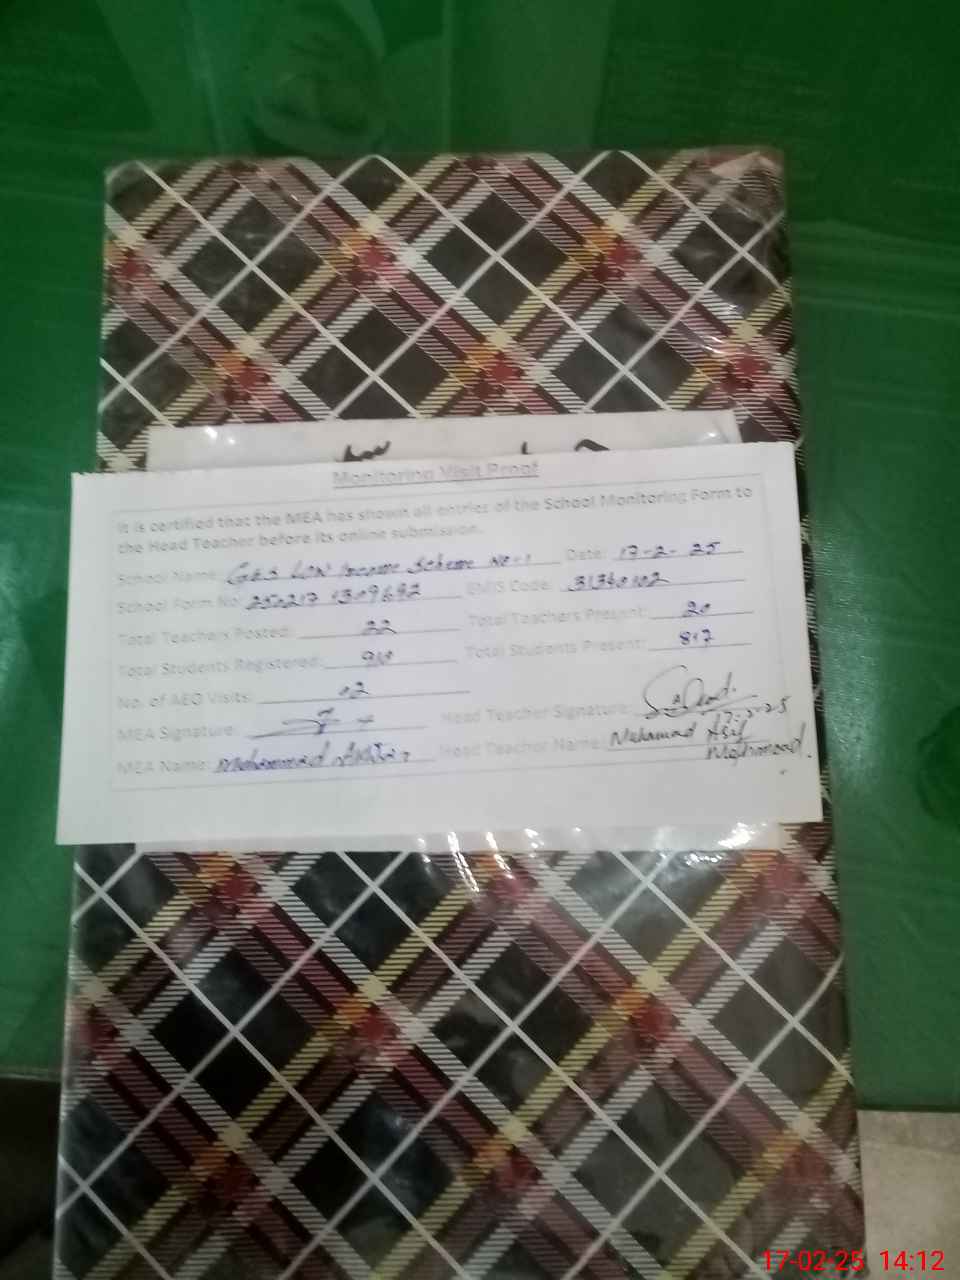 Monitoring Visit Proof
It is certified that the MEA has shown all entries of the School Monitoring Form to
the Head Teacher before its online submission.
School Name: GES Low Income Scheme No-1 Date: 17-2-25
School Form No: 250217 1309692 EMIS Code: 31340102
Total Teachers Posted: 22 Total Teachers Present: 20
Total Students Registered: Total Students Present: 817
No. of AEO Visits: 02
MEA Signature: Head Teacher Signature:
17-2-25
MEA Name: Mohammad Head Teacher Name: Muhamad Asif
Mehmood.
17-02-25 14:12